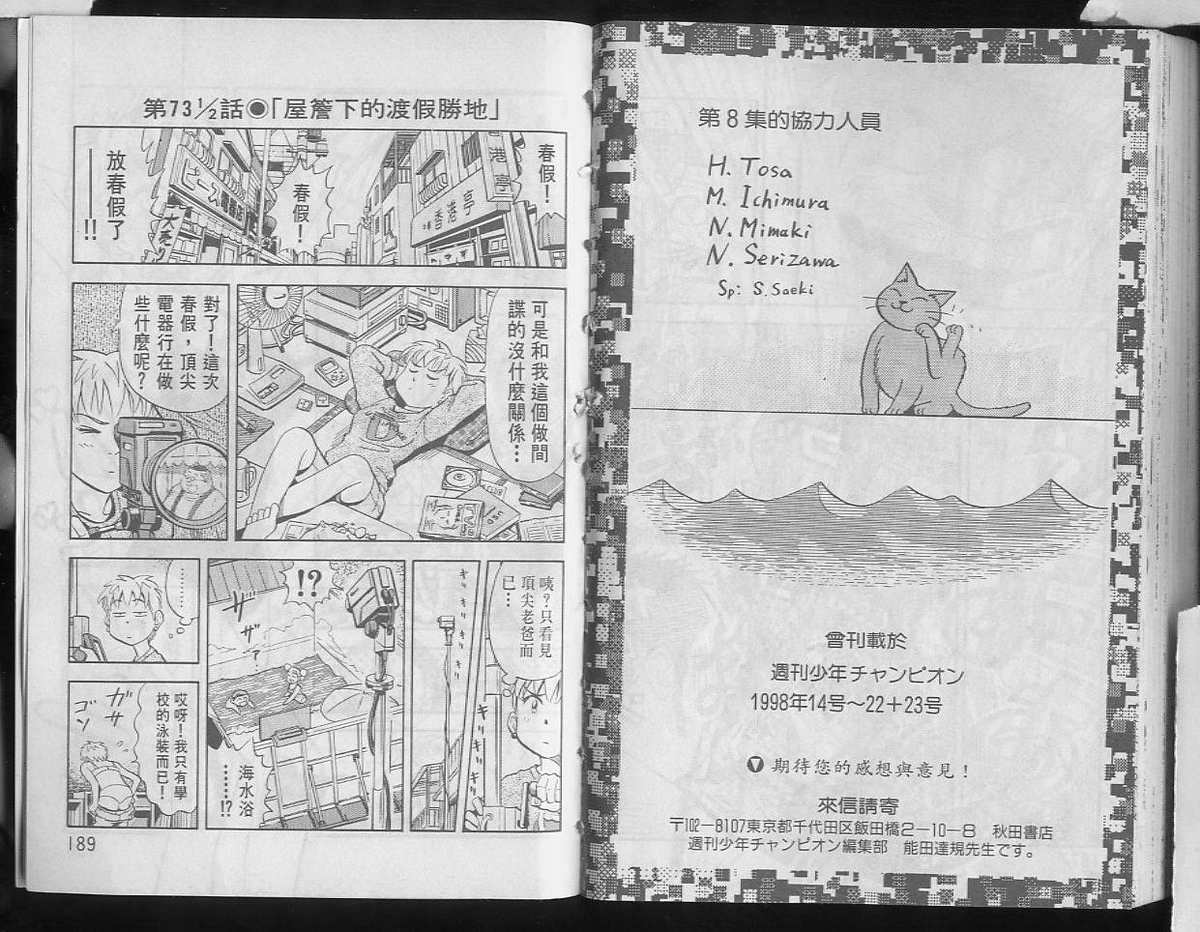 第73½話●「屋簷下的渡假勝地」
春假！
春假！
放春假了
──!!
港亭
香港亭
ピース電器店
大売り
可是和我這個做間
諜的沒什麼關係…
對了！這次
春假，頂尖
電器行在做
些什麼呢？
咦？只看見
頂尖老爸而
已…
キリキリキリキリ
キリキリ
!?
ザ
ザァ
海水浴
……!?
………
哎呀！我只有學
校的泳裝而已！
ガサ
ゴソ
189
第8集的協力人員
H. Tosa
M. Ichimura
N. Mimaki
N. Serizawa
Sp: S. Saeki
曾刊載於
週刊少年チャンピオン
1998年14号～22＋23号
▼期待您的感想與意見！
來信請寄
〒102－8107東京都千代田区飯田橋2－10－8　秋田書店
週刊少年チャンピオン編集部　能田達規先生です。